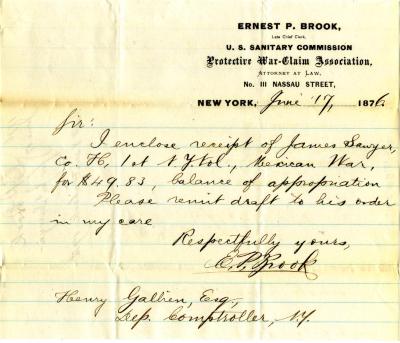 ERNEST P. BROOK,
Late Chief Clerk,
U. S. SANITARY COMMISSION
Protective War-Claim Association,
ATTORNEY AT LAW,
No. 111 NASSAU STREET,
NEW YORK, June 17, 1876
Sir:
I enclose receipt of James Sawyer,
Co. H, 1st N.Y. Vol., Mexican War,
for $49.83, balance of appropriation
Please remit draft to his order
in my care
Respectfully yours,
E. P. Brook
Henry Gallien, Esq,
Dep. Comptroller, N.Y.